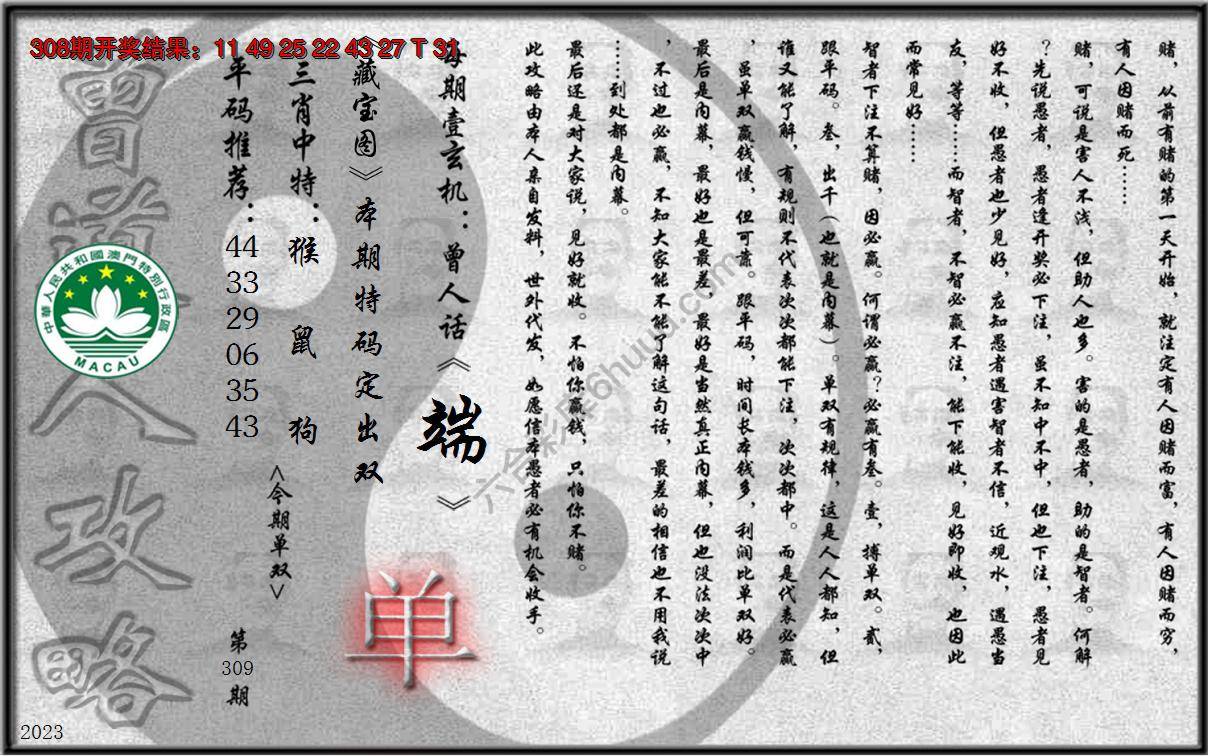 308期开奖结果：11 49 25 22 43 27 T 31
赌，从前有赌的第一天开始，就注定有人因赌而富，有人因赌而穷，
有人因赌而死……
赌，可说是害人不浅，但助人也多。害的是愚者，助的是智者。何解
？先说愚者，愚者逢开奖必下注，虽不知中不中，但也下注，愚者见
好不收，但愚者也少见好，应知愚者遇害智者不信，近观水，遇愚当
友，等等……而智者，不智必赢不注，能下能收，见好即收，也因此
而常见好……
智者下注不算赌，因必赢。何谓必赢？必赢有叁。壹，搏单双。贰，
跟平码。叁，出千（也就是内幕）。单双有规律，这是人人都知，但
谁又能了解，有规则不代表次次都能下注，次次都中。而是代表必赢
，虽单双赢钱慢，但可靠。跟平码，时间长本钱多，利润比单双好。
最后是内幕，最好也是最差，最好是当然真正内幕，但也没法次次中
，不过也必赢，不知大家能不能了解这句话，最差的相信也不用我说
……到处都是内幕。
最后还是对大家说，见好就收。不怕你赢钱，只怕你不赌。
此攻略由本人亲自发料，世外代发，如愿信本愚者必有机会收手。
每期壹玄机：曾人话《端》
《藏宝图》本期特码定出双
三肖中特：猴 鼠 狗
平码推荐：44 33 29 06 35 43
<今期单双>
单
第309期
曾道人攻略
中華人民共和國澳門特別行政區
MACAU
2023